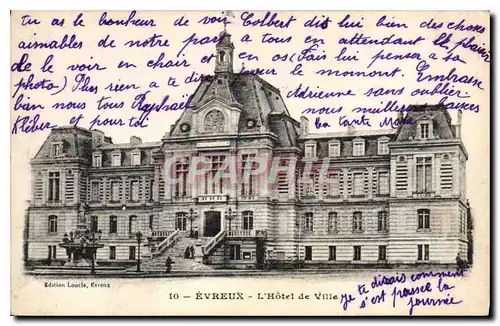 tu as le bonheur de voir Colbert dis lui bien des choses
aimables de notre part à tous en attendant le plaisir
de le voir en chair et en os (Fais lui penser à sa
photo) Plus rien a te dire pour le moment. Embrasse
bien nous tous Raphael Adrienne sans oublier
Kléber et pour toi nous meilleures
ta tante
CARTE
POSTALE
Edition Loncle, Evreux
10 - ÉVREUX - L'Hôtel de Ville
je te dirais comment
s'est passée la
journée